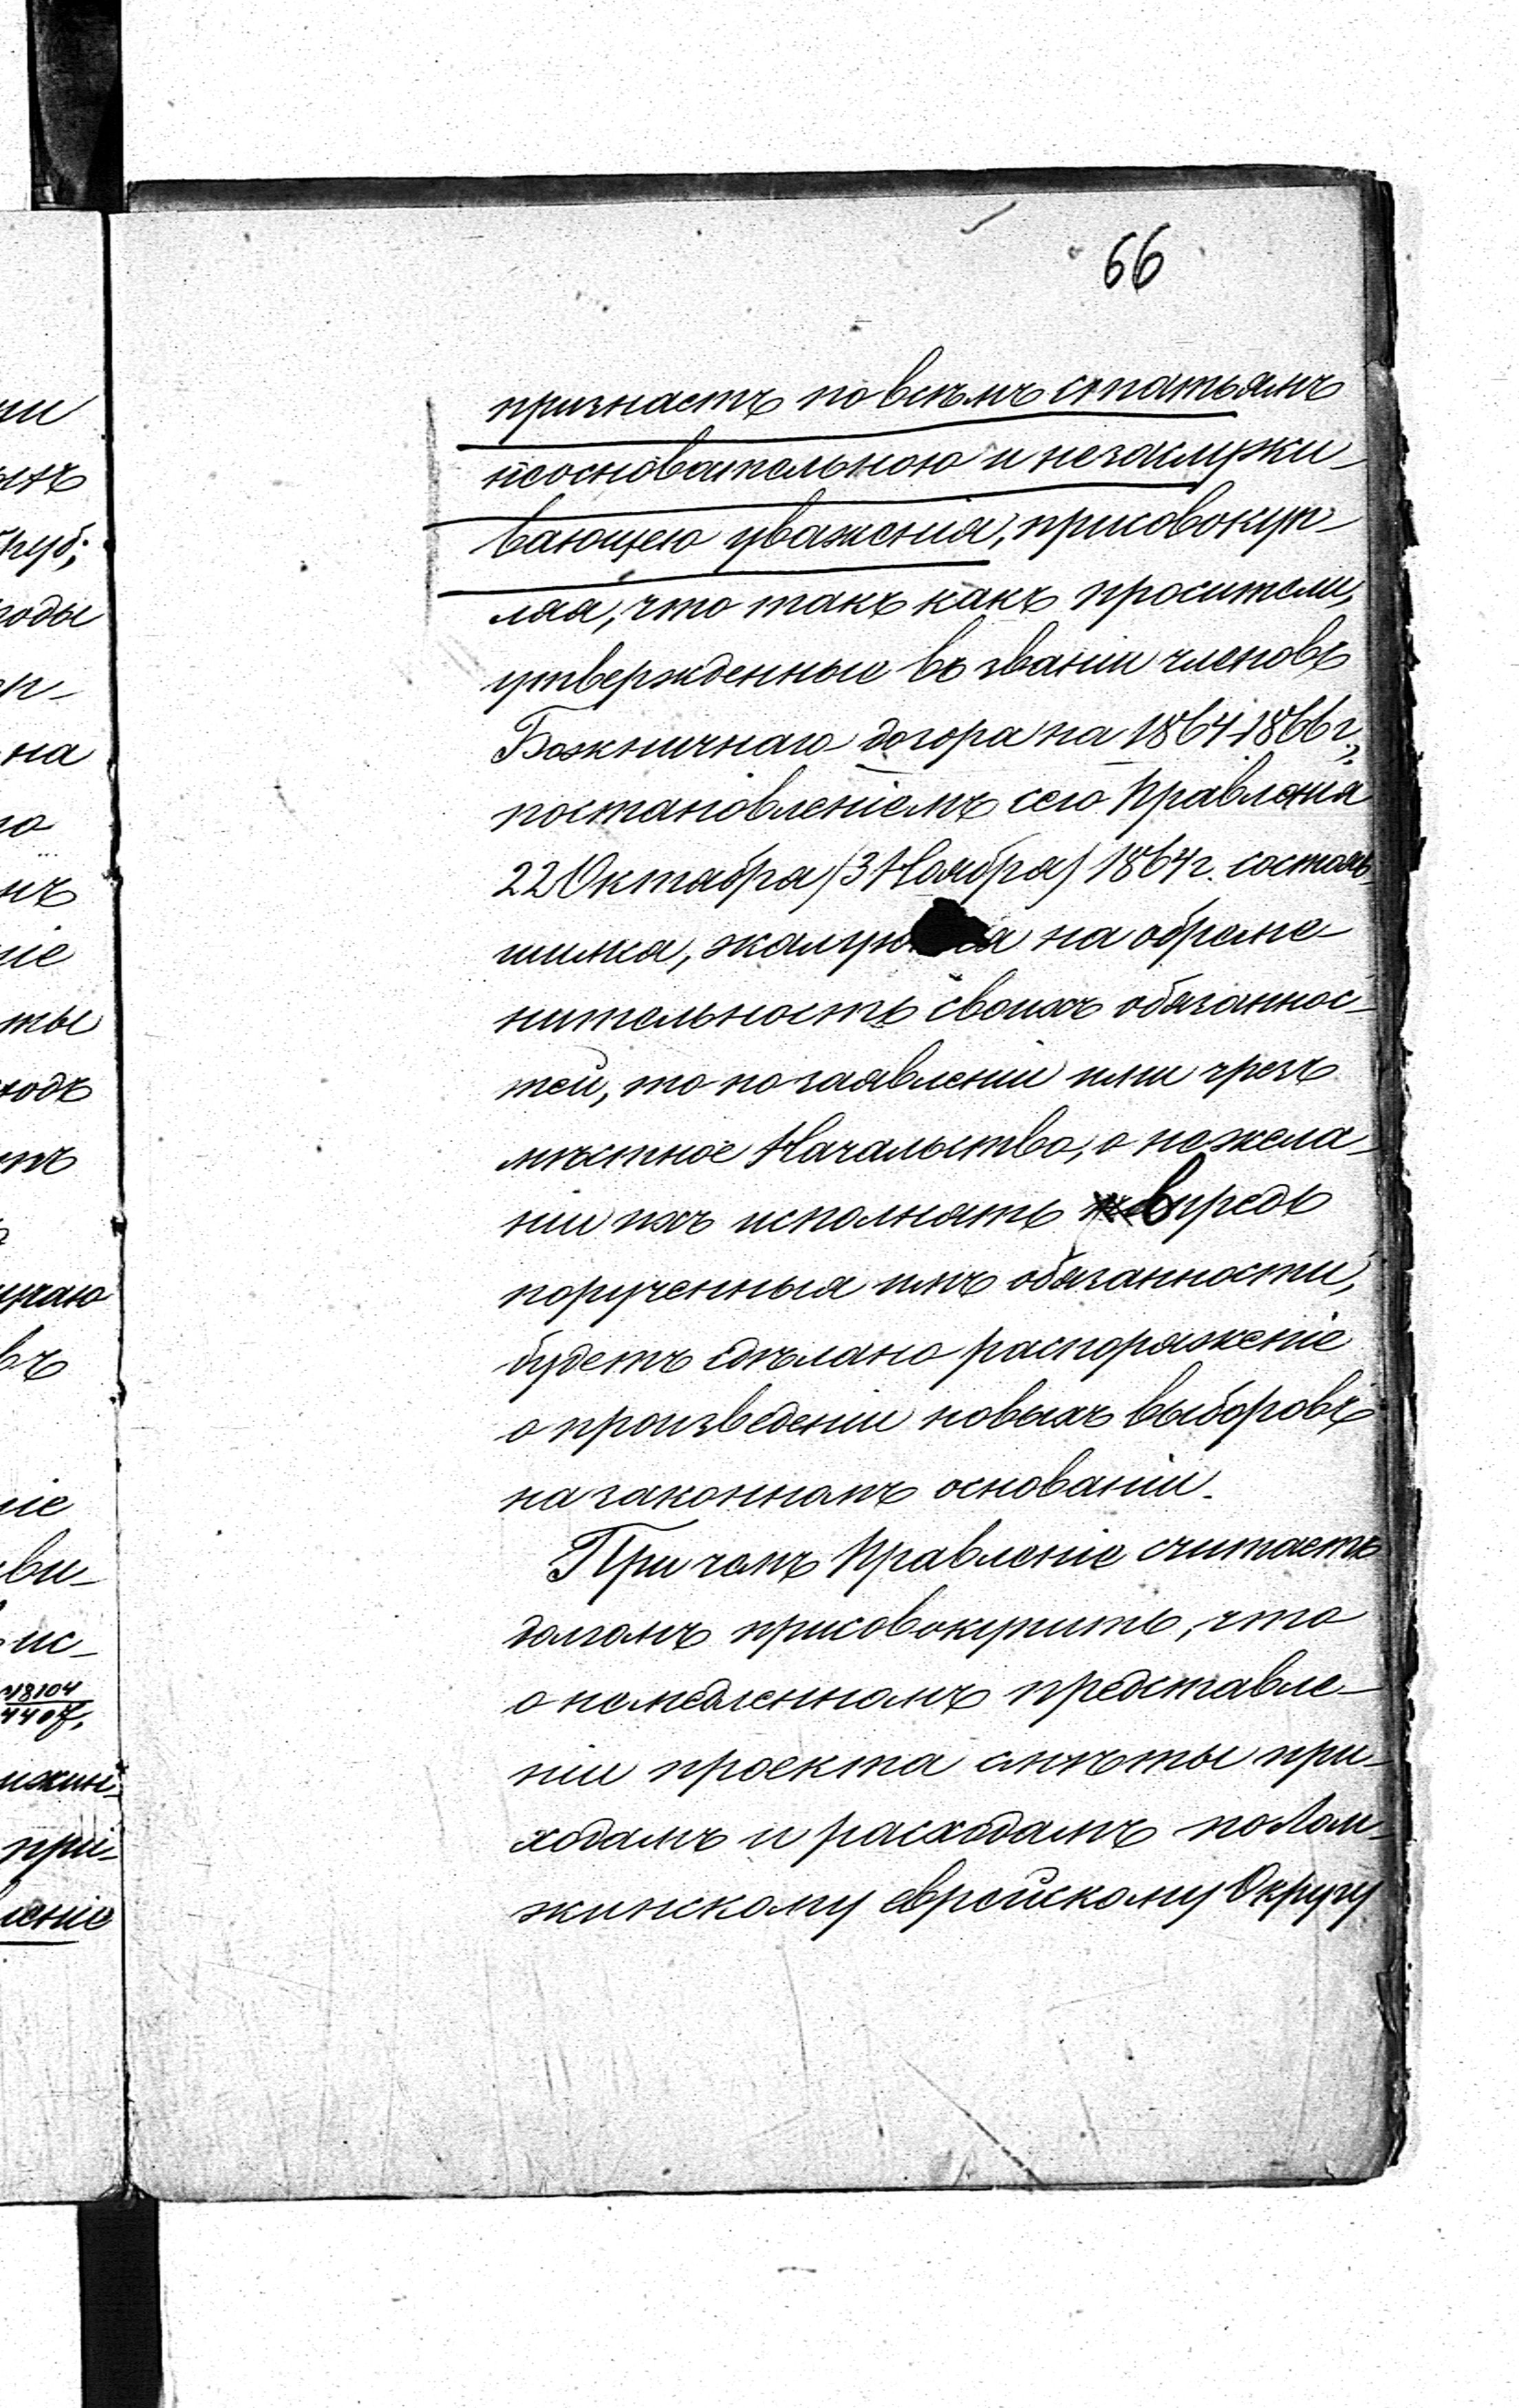 66
признаетъ по всѣмъ статьямъ
неосновательною и незаслужи-
вающею уваженія, присовокуп-
ляя, что такъ какъ просители,
утвержденные въ званіи членовъ
Божничнаго дозора на 1864/1866 г.,
постановленіемъ сего Правленія
22 Октября /3 Ноября/ 1864 г. состояв-
шимся, жалуются на обреме-
нительность своихъ обязаннос-
тей, то по заявленіи ими чрезъ
мѣстное Начальство, о нежела-
ніи ихъ исполнять впредь
порученныя имъ обязанности,
будетъ сдѣлано распоряженіе
о произведеніи новыхъ выборовъ
на законномъ основаніи.
При чемъ Правленіе считаетъ
долгомъ присовокупить, что
о немедленномъ представле-
ніи проекта смѣты при-
ходамъ и расходамъ по Лом-
жинскому еврейскому Округу